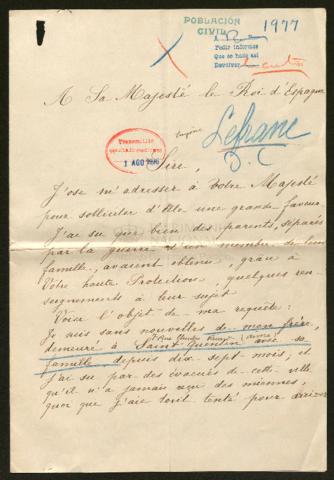 POBLACIÓN
CIVIL
1977
Pedir informes
Que se hado así
Devolver
A Sa Majesté le Roi d'Espagne
Eugène
Lefranc
D. C
Transmitir
1 AGO 1916
Sire,
J'ose m'adresser à Votre Majesté
pour solliciter d'Elle une grande faveur
J'ai su que bien des parents, séparés
par la guerre d'un membre de leur
famille, avaient obtenu, grâce à
Votre haute Protection, quelques ren-
seignements à leur sujet
Voici l'objet de ma requête:
Je suis sans nouvelles de mon frère,
7 Rue Charles (Aisne)
demeuré à Saint Quentin avec sa
famille, depuis dix sept mois; et
j'ai su par des évacués de cette ville
qu'il n'a jamais reçu des miennes,
quoi que j'aie tout tenté pour arriver